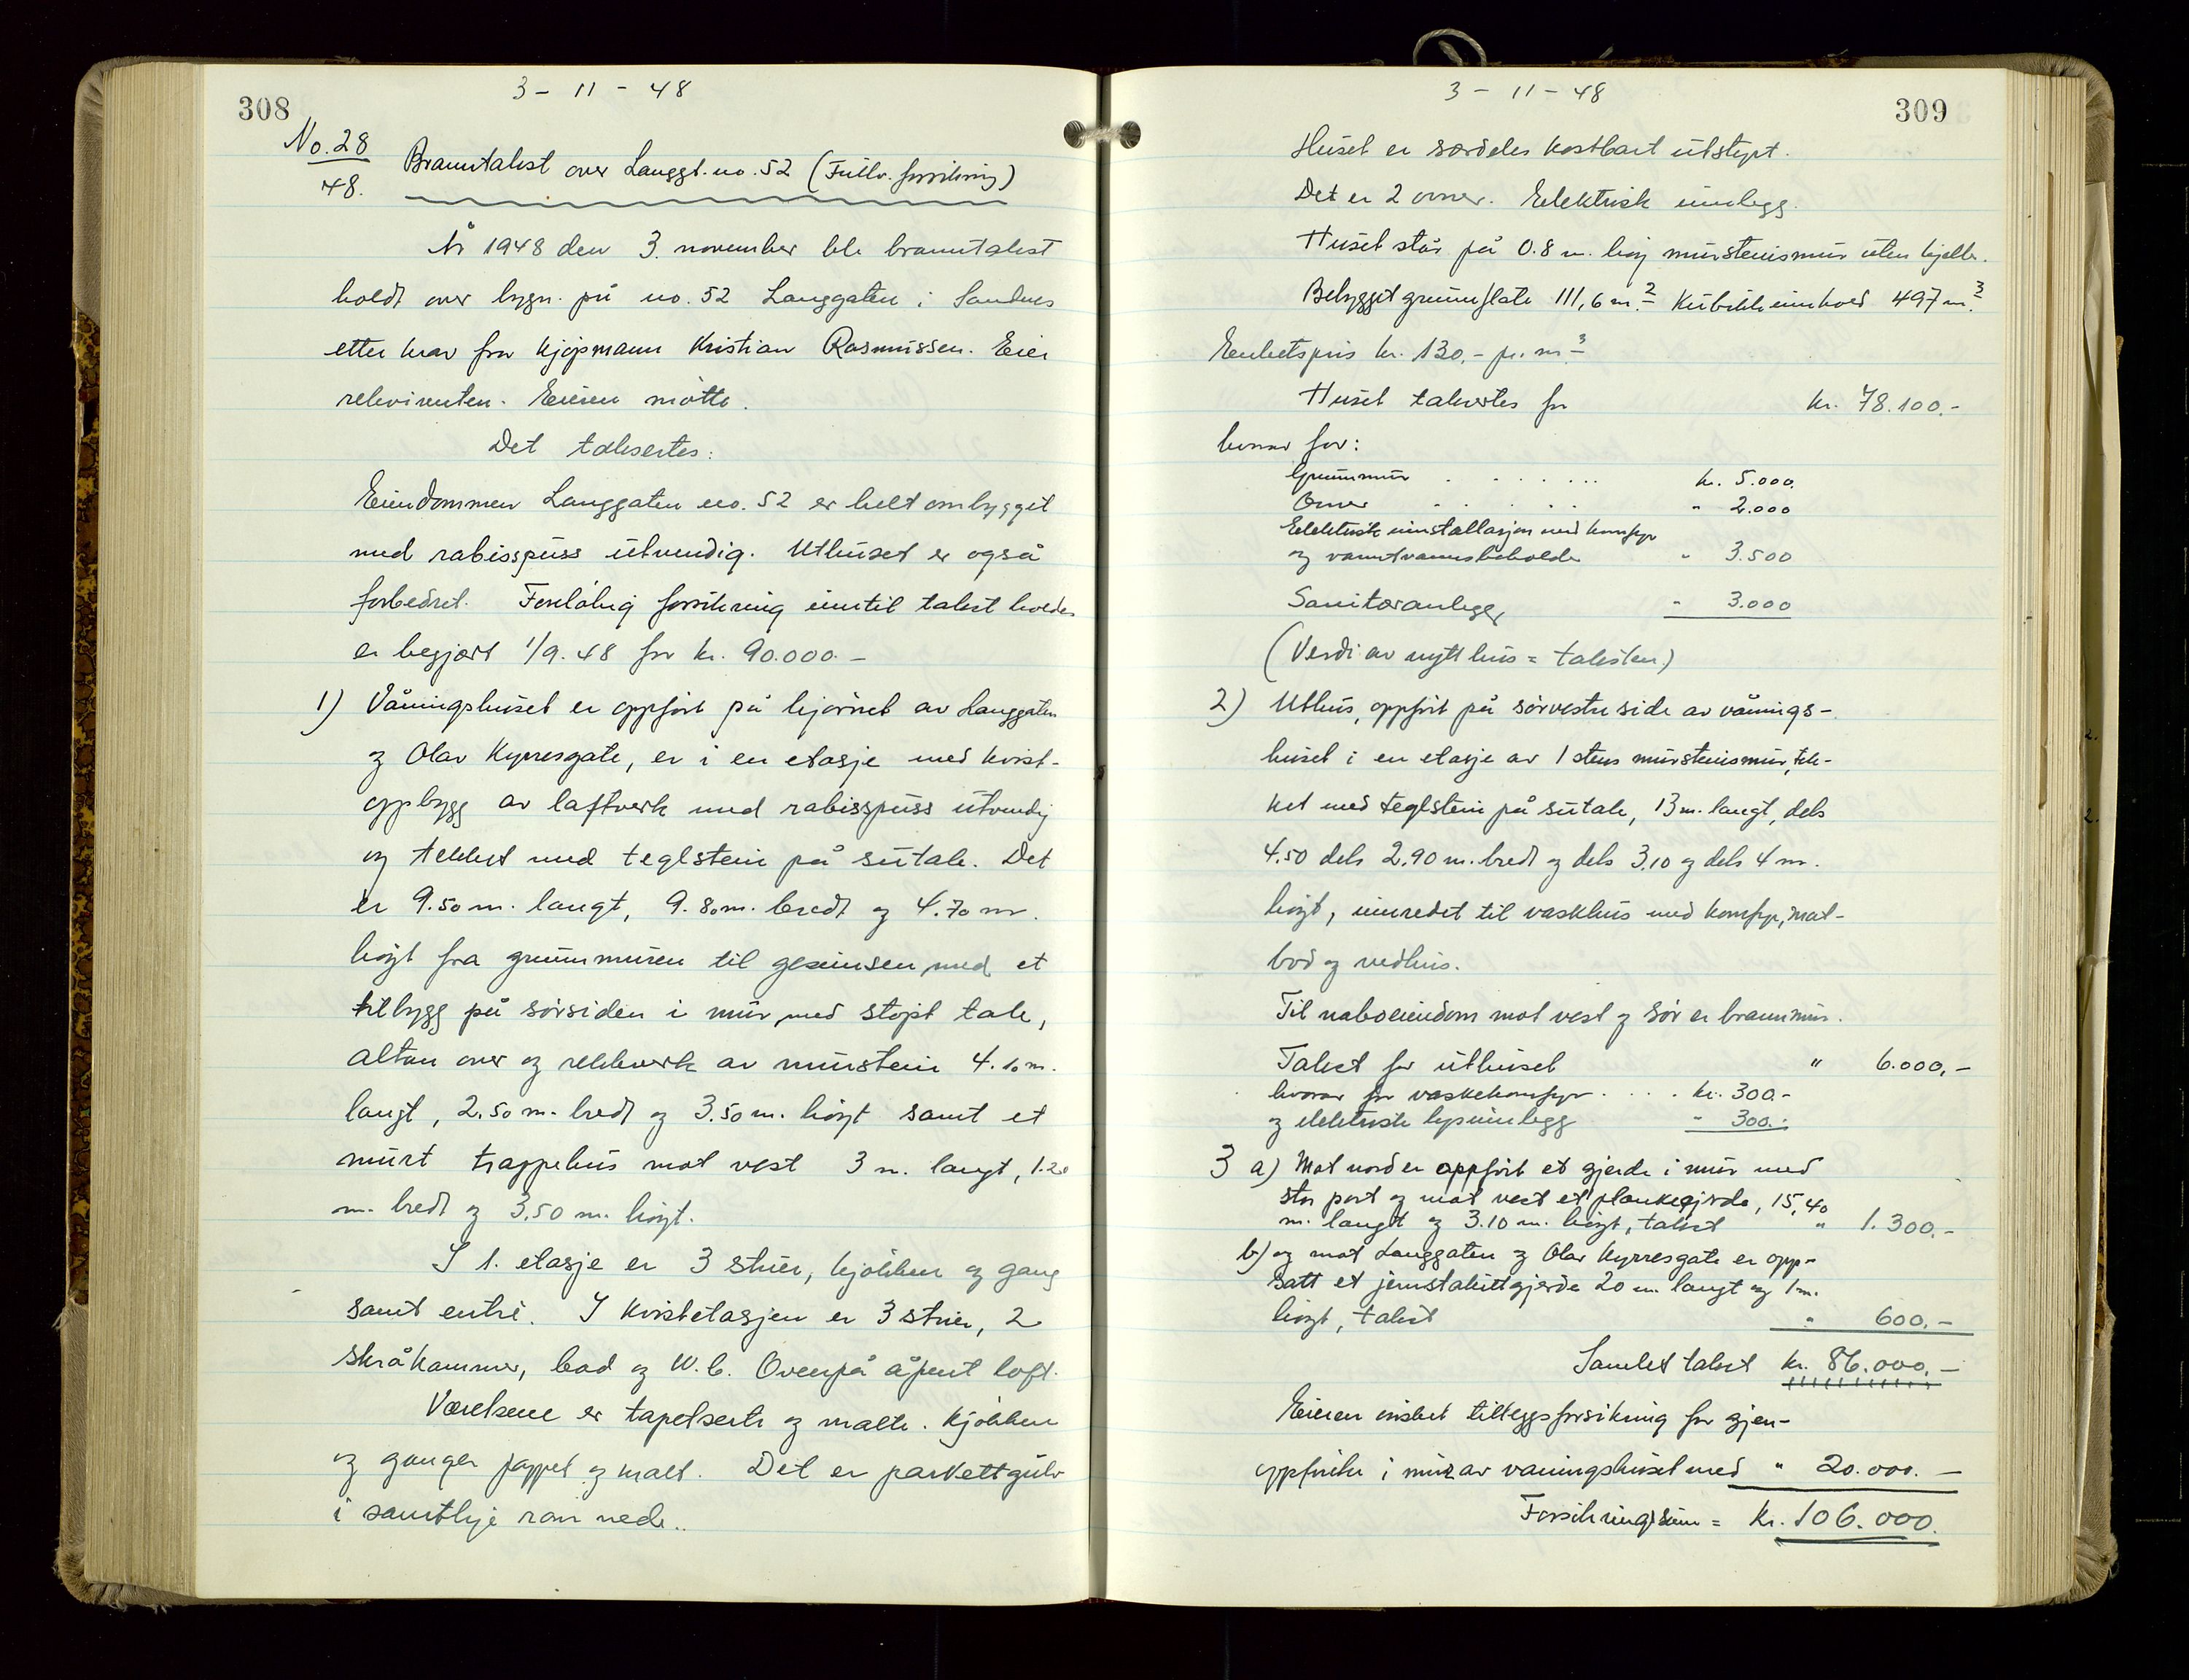 308
3 - 11 - 48
No. 28
48.
Branntakst over Langgt. no. 52 (Fullv. forsikring)
År 1948 den 3. november ble branntakst
holdt over bygn. på no. 52 Langgaten i Sandnes
etter krav fra kjøpmann Kristian Rasmussen. Eier
rekvirenten. Eieren møtte.
Det takseres:
Eiendommen Langgaten no. 52 er helt ombygget
med rabisspuss utvendig. Uthuset er også
forbedret. Foreløbig forsikring inntil takst holdes
er begjært 1/9. 48 for kr. 90.000.-
1) Våningshuset er oppført på hjørnet av Langgaten
og Olav Kyrresgate, er i en etasje med kvist-
oppbygg av laftverk med rabisspuss utvendig
og tekket med teglstein på sutak. Det
er 9.50 m. langt, 9.80 m. bredt og 4.70 m.
høgt fra grunnmuren til gesimsen, med et
tilbygg på sørsiden i mur, med støpt tak,
altan over og rekkverk av murstein 4.10 m.
langt, 2.50 m. bredt og 3.50 m. høgt samt et
murt trappehus mot vest 3 m. langt, 1.20
m. bredt og 3.50 m. høgt.
I 1. etasje er 3 stuer, kjøkken og gang
samt entré. I kvistetasjen er 3 stuer, 2
skråkammer, bad og W.C. Ovenpå åpent loft.
Værelsene er tapetserte og malte. Kjøkken
og ganger pappet og malt. Det er parkettgulv
i samtlige rom nede.
309
3 - 11 - 48
Huset er særdeles kostbart utstyrt.
Det er 2 ovner. Elektrisk innlegg.
Huset står på 0.8 m. høg murstensmur uten kjeller.
Bebygget grunnflate 111,6 m.2 Kubikkinnhold 497 m.3
Enhetspris kr. 130.- pr. m.3
Huset takseres for kr. 78.100.-
hvorav for:
Grunnmur . . . . . . kr. 5.000.
Ovner . . . . . " 2.000
Elektrisk innstallasjon med komfyr
og varmtvannsbeholder " 3.500
Sanitæranlegg " 3.000
(Verdi av nytt hus = taksten.)
2) Uthus, oppført på sørvestre side av vånings-
huset i en etasje av 1 stens murstensmur, tek-
ket med teglstein på sutak, 13 m. langt, dels
4.50 dels 2.90 m. bredt og dels 3.10 og dels 4 m.
høgt, innredet til vaskhus med komfyr, mat-
bod og vedhus.
Til naboeiendom mot vest og sør er brannmur.
Takst for uthuset " 6.000.-
hvorav for vaskekomfyr . . . . kr. 300.-
og elektrisk lysinnlegg " 300.-
3 a) Mot nord er oppført et gjerde i mur med
stor port og mot vest et plankegjerde, 15,40
m. langt og 3.10 m. høgt, takst " 1.300.-
b) og mot Langgaten og Olav Kyrresgate er opp-
satt et jernstakittgjerde 20 m. langt og 1 m.
høgt, takst " 600.-
Samlet takst kr. 86.000.-
Eieren ønsket tilleggsforsikring for gjen-
oppførelse i mur av våningshuset med " 20.000.-
Forsikringssum = Kr. 106.000.